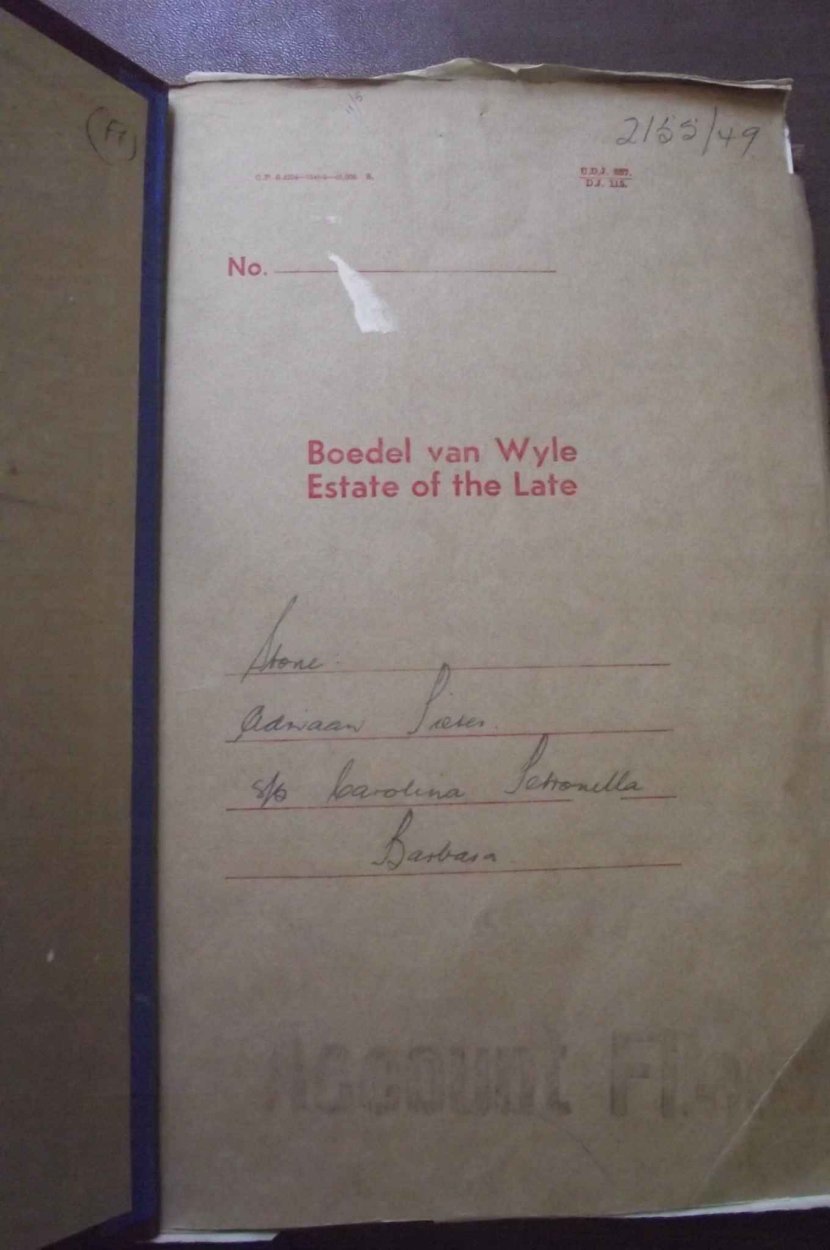 2155/49
U.D.J. 557.
D.J. 115.
No.
Boedel van Wyle
Estate of the Late
Stone
Adriaan Pieter
s/p Carolina Petronella
Barbara
Account Filed